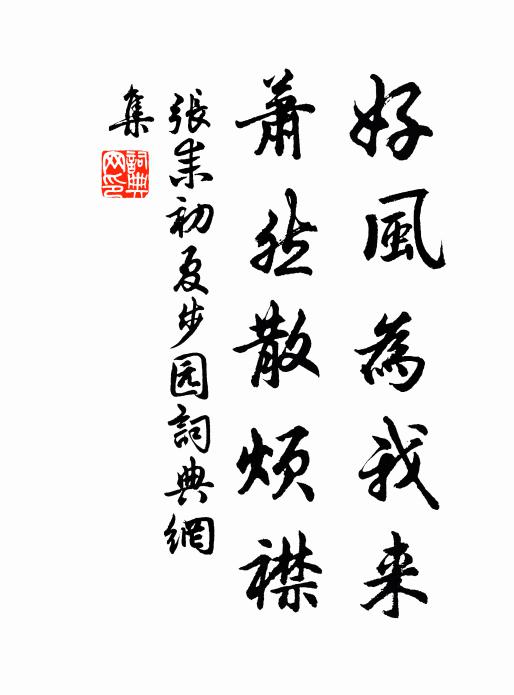 好風為我来
蕭然散煩襟
張耒初夏步园詞典網
集
詞典
网印